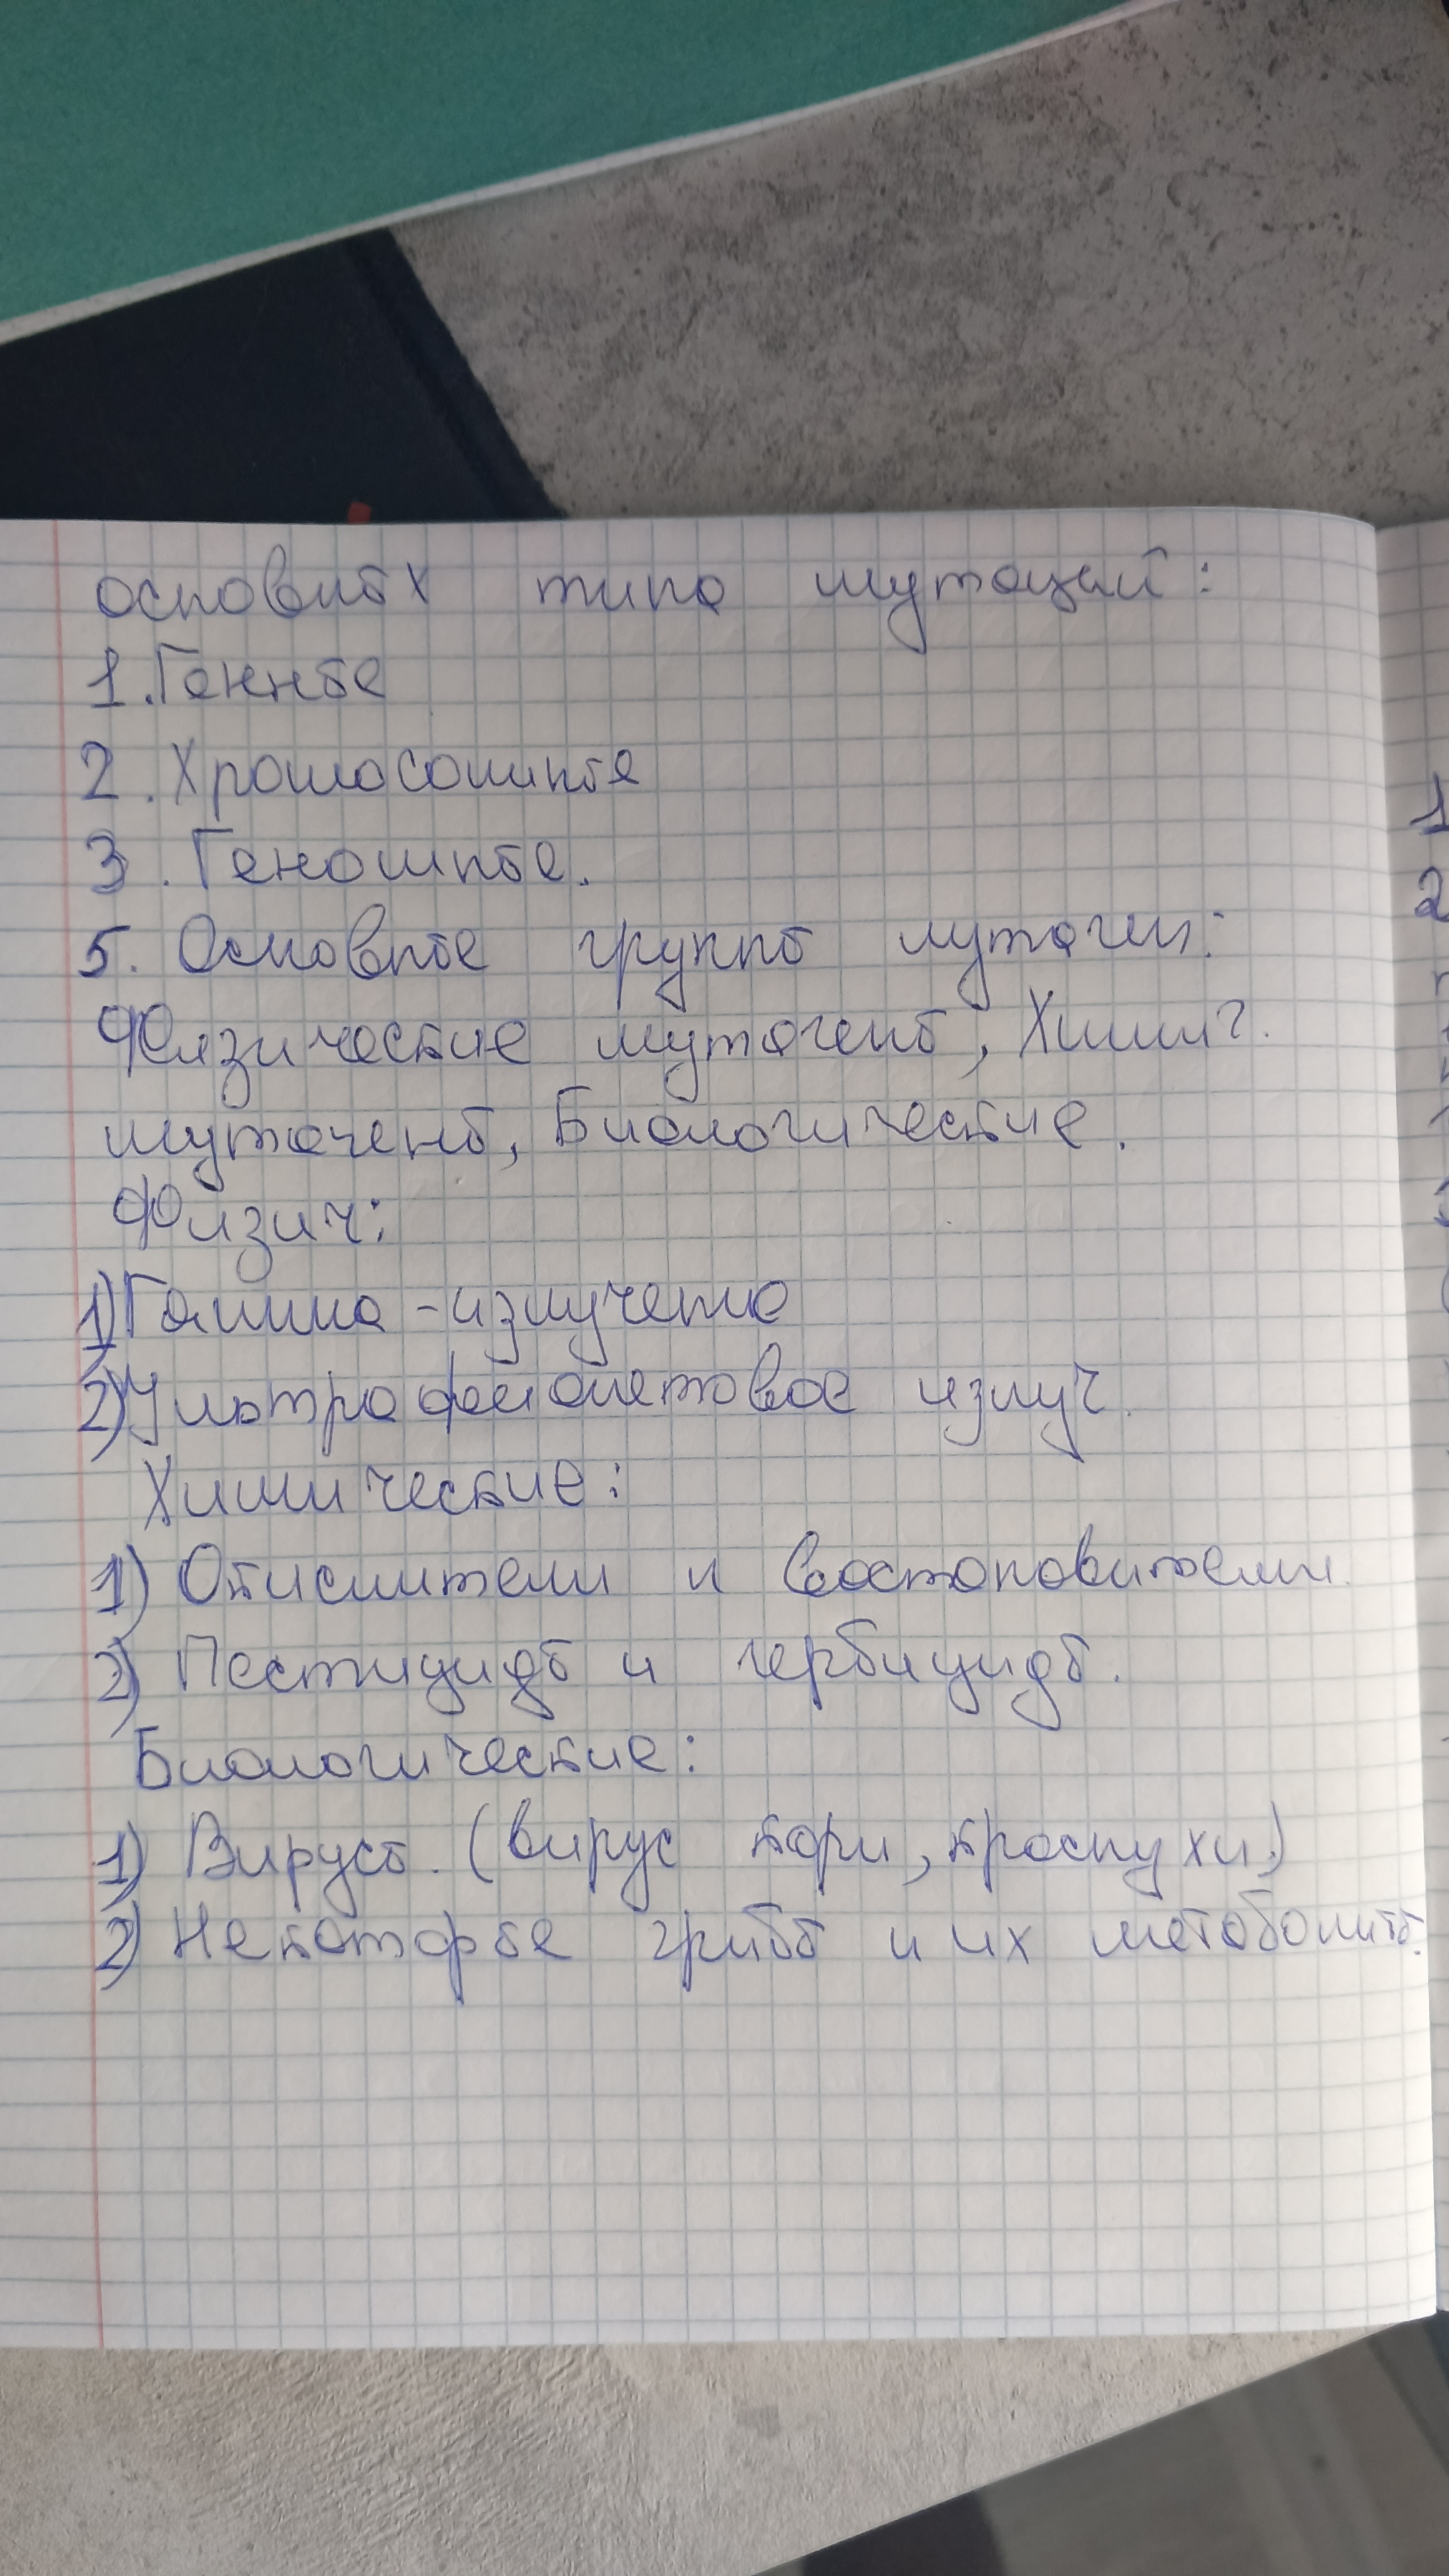 основных типа мутаций:
1. Генные
2. Хромосомные
3. Геномные.
5. Основные группы мутаген:
Физические мутагены, Химич.
мутагены, Биологические.
Физич:
1) Гамма-излучение
2) Ультрафиолетовое излуч.
Химические:
1) Окислители и востоновители.
2) Пестициды и гербициды.
Биологические:
1) Вирусы. (вирус кори, краснухи.)
2) Некоторые грибы и их метоболиты.
1
2